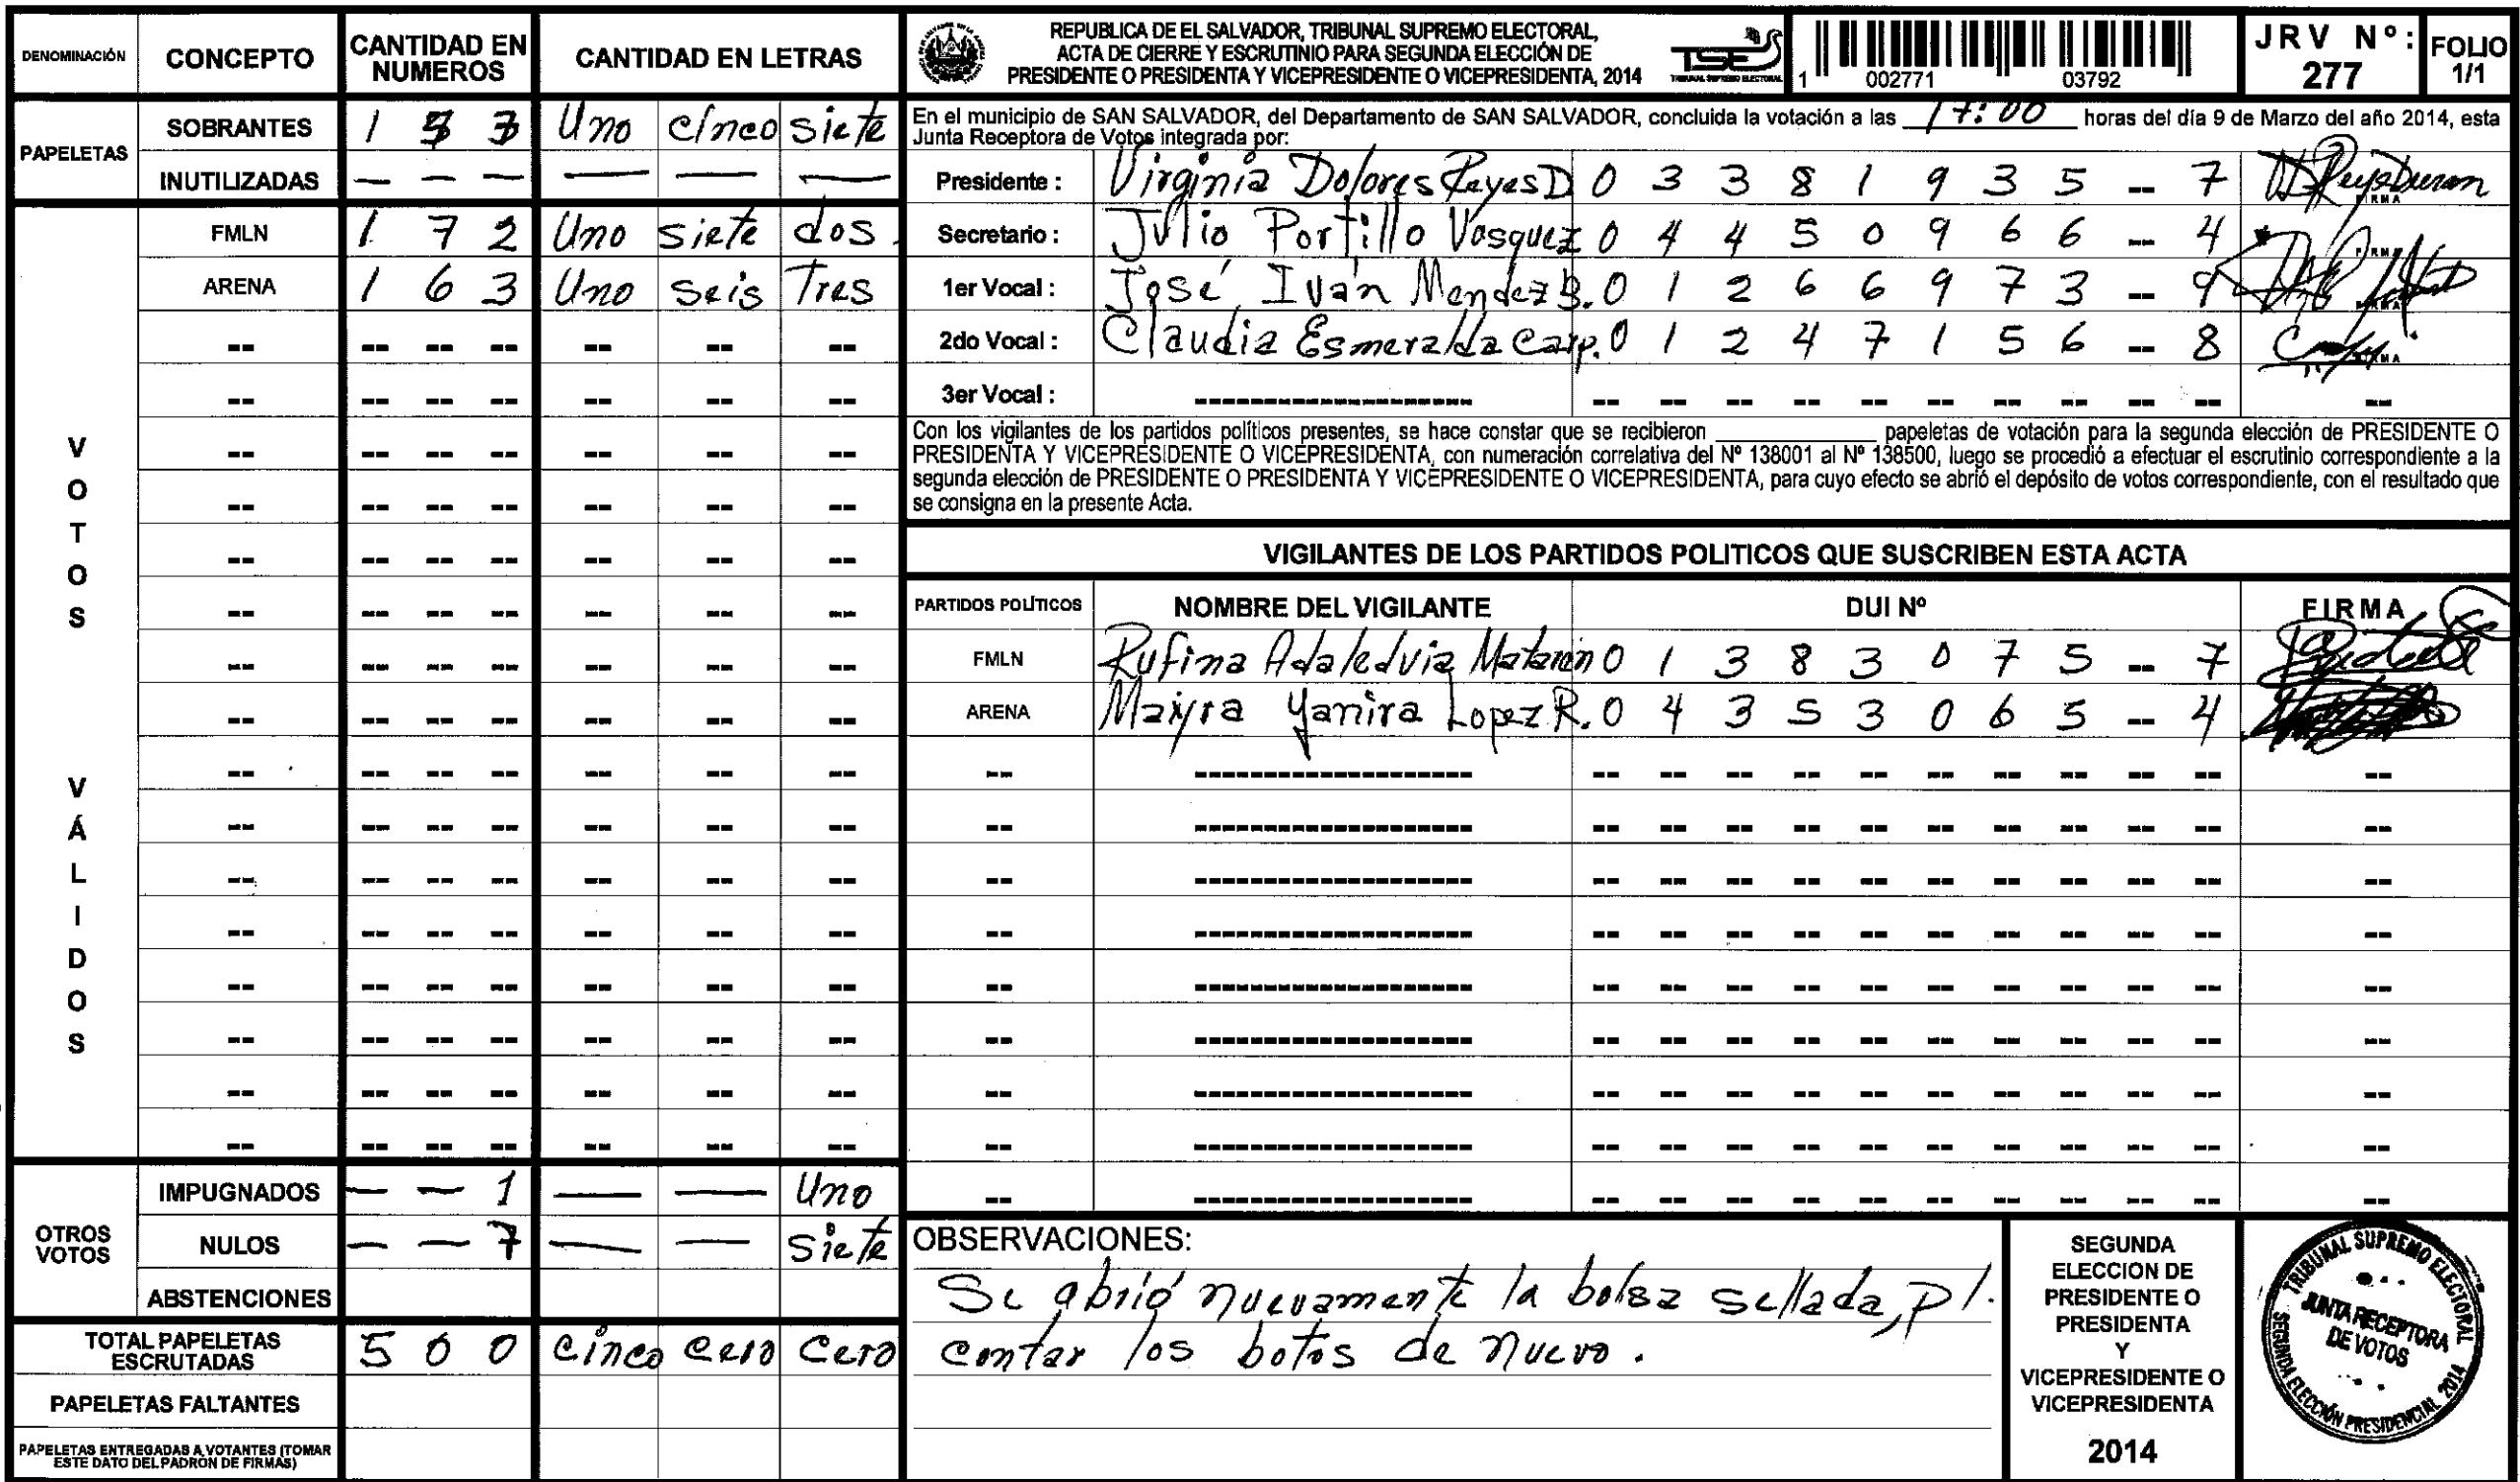 DENOMINACIÓN CONCEPTO CANTIDAD EN NUMEROS CANTIDAD EN LETRAS
PAPELETAS
SOBRANTES 1 5 7 Uno cinco siete
INUTILIZADAS — — — — — —
VOTOS VÁLIDOS
FMLN 1 7 2 Uno siete dos.
ARENA 1 6 3 Uno seis Tres
OTROS VOTOS
IMPUGNADOS — — 1 — — Uno
NULOS — — 7 — — siete
ABSTENCIONES
TOTAL PAPELETAS ESCRUTADAS 5 0 0 cinco cero cero
PAPELETAS FALTANTES
PAPELETAS ENTREGADAS A VOTANTES (TOMAR
ESTE DATO DEL PADRÓN DE FIRMAS)
REPUBLICA DE EL SALVADOR, TRIBUNAL SUPREMO ELECTORAL,
ACTA DE CIERRE Y ESCRUTINIO PARA SEGUNDA ELECCIÓN DE
PRESIDENTE O PRESIDENTA Y VICEPRESIDENTE O VICEPRESIDENTA, 2014
TSE
TRIBUNAL SUPREMO ELECTORAL
1 002771 03792
JRV Nº: 277
FOLIO 1/1
En el municipio de SAN SALVADOR, del Departamento de SAN SALVADOR, concluida la votación a las 17:00 horas del día 9 de Marzo del año 2014, esta
Junta Receptora de Votos integrada por:
Presidente : Virginia Dolores Reyes D 0 3 3 8 1 9 3 5 -- 7
Secretario : Julio Portillo Vasquez 0 4 4 5 0 9 6 6 -- 4
1er Vocal : José Iván Mendez B. 0 1 2 6 6 9 7 3 -- 9
2do Vocal : Claudia Esmeralda Carp. 0 1 2 4 7 1 5 6 -- 8
3er Vocal :
Con los vigilantes de los partidos políticos presentes, se hace constar que se recibieron ____________ papeletas de votación para la segunda elección de PRESIDENTE O
PRESIDENTA Y VICEPRESIDENTE O VICEPRESIDENTA, con numeración correlativa del Nº 138001 al Nº 138500, luego se procedió a efectuar el escrutinio correspondiente a la
segunda elección de PRESIDENTE O PRESIDENTA Y VICEPRESIDENTE O VICEPRESIDENTA, para cuyo efecto se abrió el depósito de votos correspondiente, con el resultado que
se consigna en la presente Acta.
VIGILANTES DE LOS PARTIDOS POLITICOS QUE SUSCRIBEN ESTA ACTA
PARTIDOS POLÍTICOS NOMBRE DEL VIGILANTE DUI Nº FIRMA
FMLN Rufina Adaledvia 0 1 3 8 3 0 7 5 -- 7
ARENA Mayra Yanira Lopez R. 0 4 3 5 3 0 6 5 -- 4
OBSERVACIONES:
Se abrió nuevamente la bolsa sellada, p/.
contar los botos de nuevo.
SEGUNDA
ELECCION DE
PRESIDENTE O
PRESIDENTA
Y
VICEPRESIDENTE O
VICEPRESIDENTA
2014
TRIBUNAL SUPREMO ELECTORAL
JUNTA RECEPTORA
DE VOTOS
SEGUNDA ELECCIÓN PRESIDENCIAL 2014